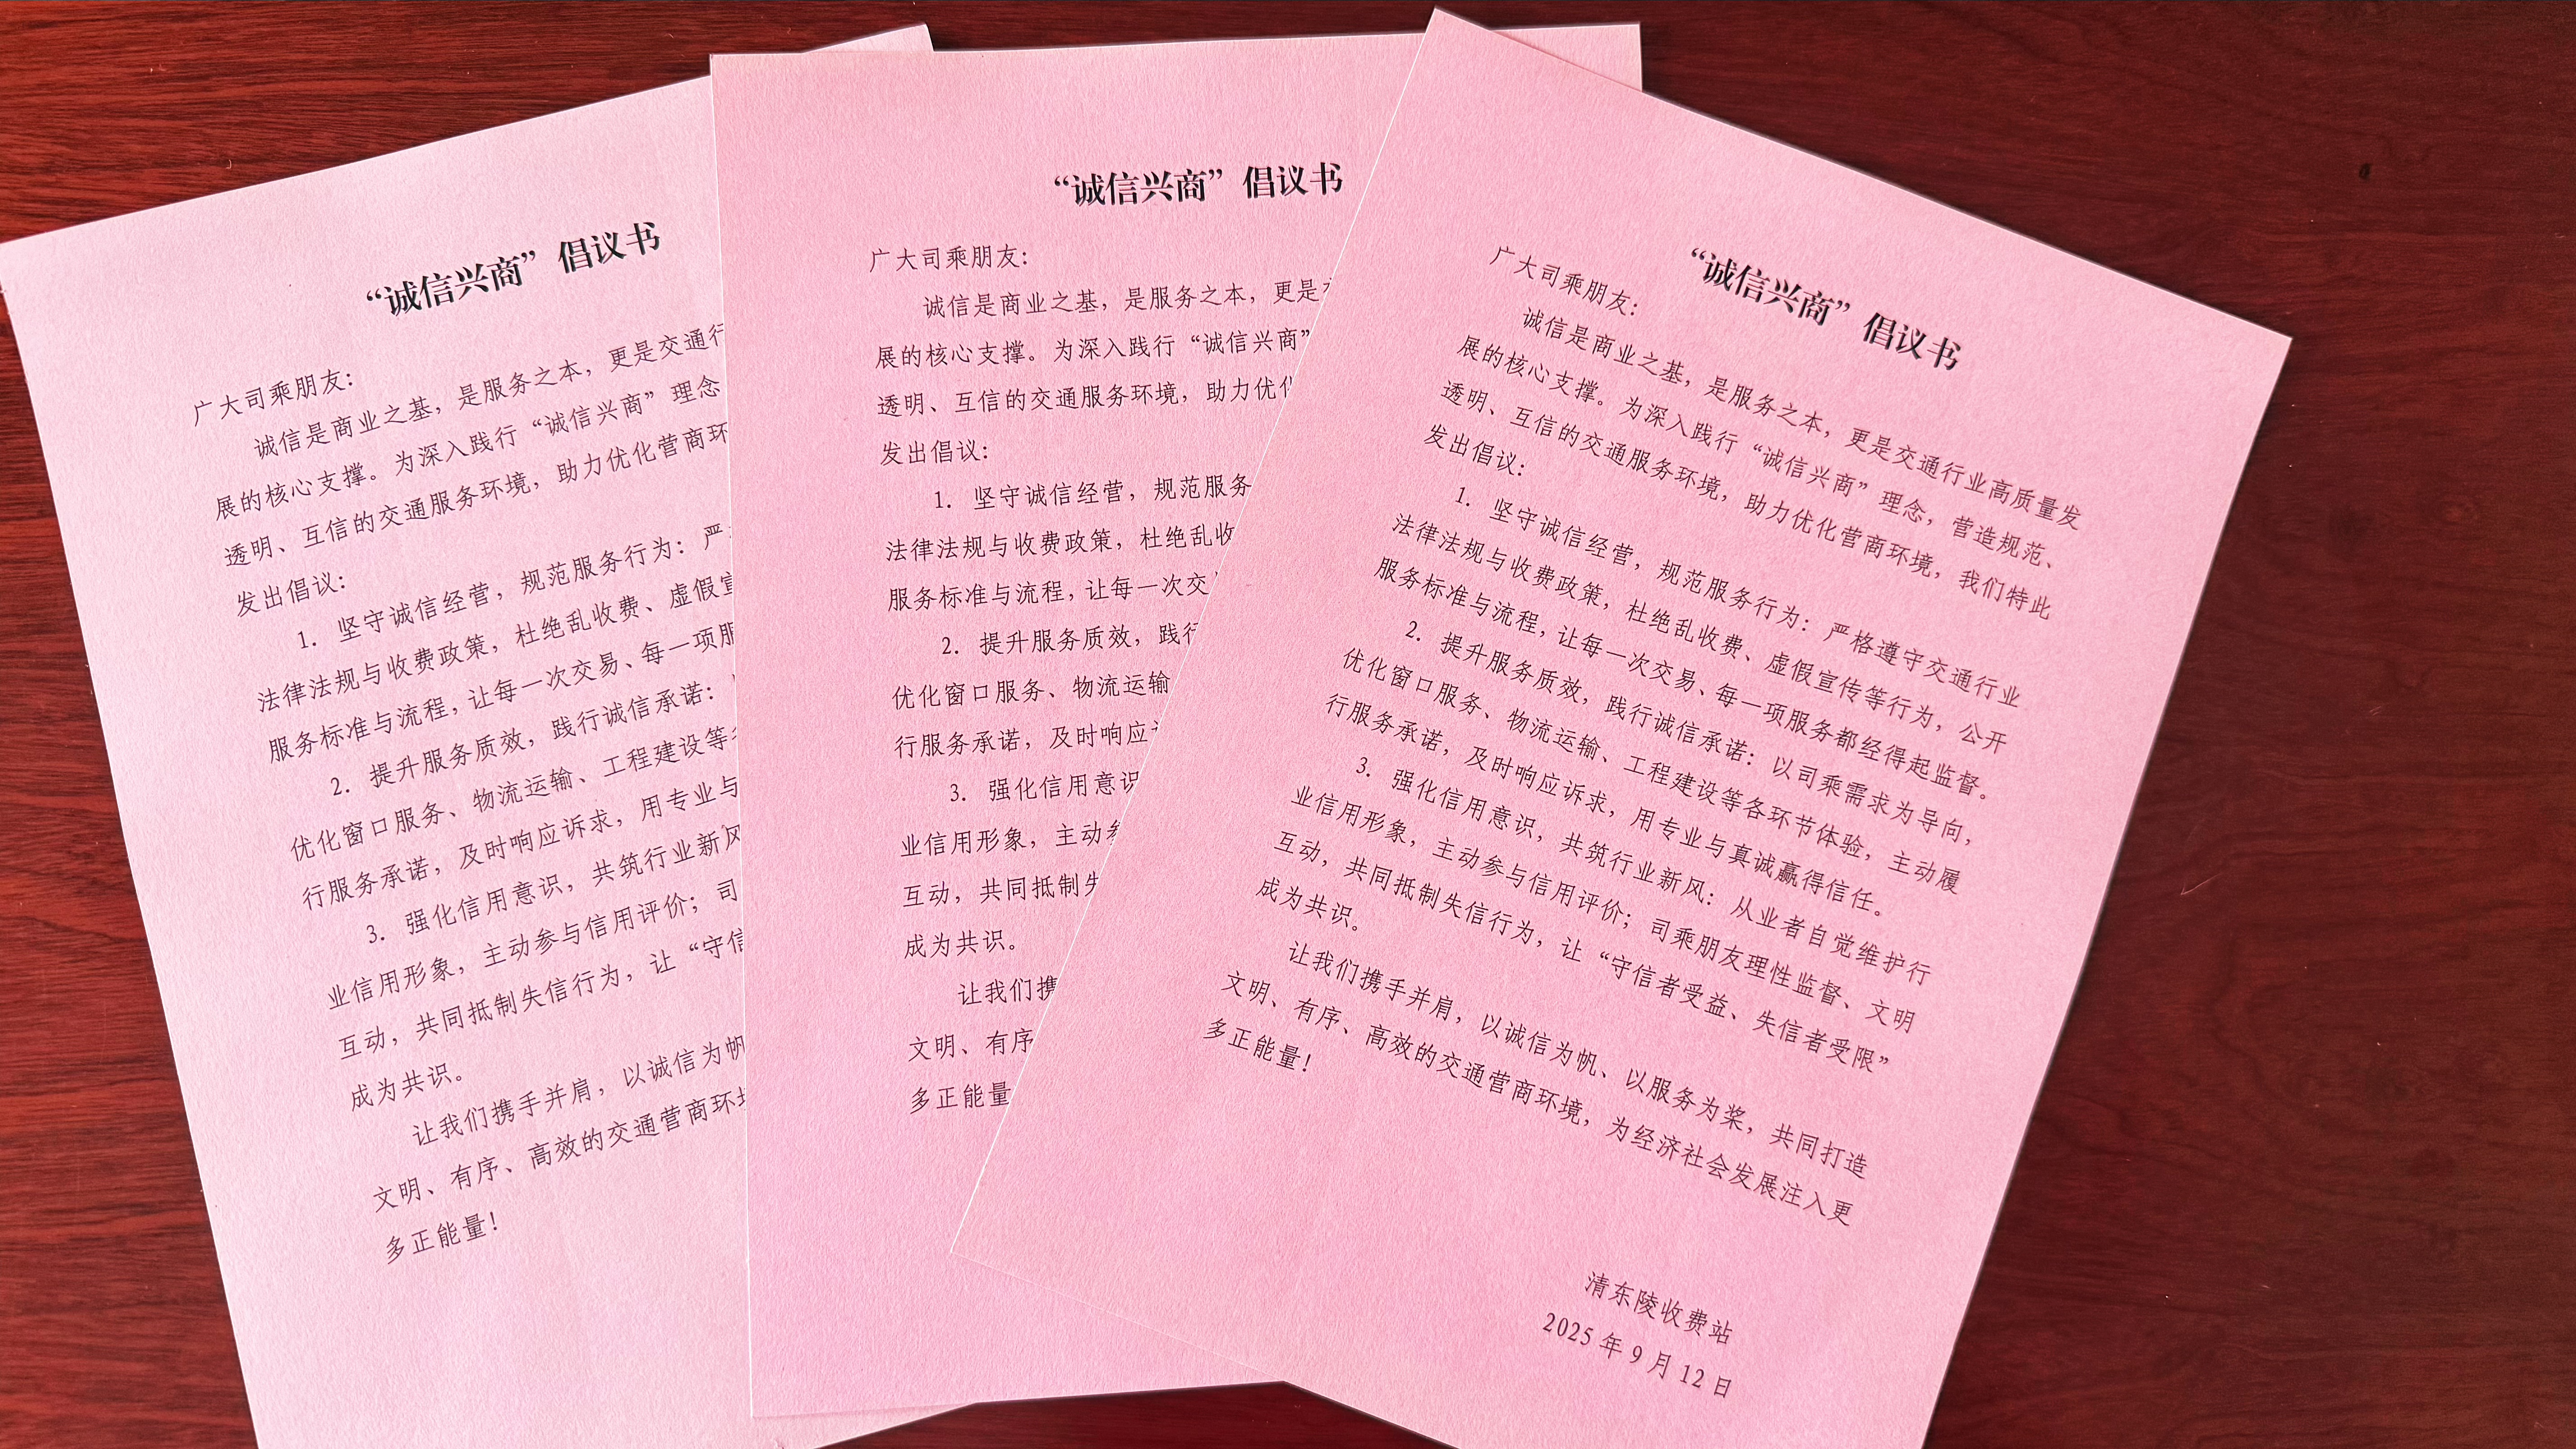 “诚信兴商”倡议书
广大司乘朋友：
诚信是商业之基，是服务之本，更是交通行
展的核心支撑。为深入践行“诚信兴商”理念
透明、互信的交通服务环境，助力优化营商环
发出倡议：
1. 坚守诚信经营，规范服务行为：严
法律法规与收费政策，杜绝乱收费、虚假宣
服务标准与流程，让每一次交易、每一项服
2. 提升服务质效，践行诚信承诺：
优化窗口服务、物流运输、工程建设等
行服务承诺，及时响应诉求，用专业与
3. 强化信用意识，共筑行业新风
业信用形象，主动参与信用评价；司
互动，共同抵制失信行为，让“守信
成为共识。
让我们携手并肩，以诚信为帆
文明、有序、高效的交通营商环境
多正能量！
“诚信兴商”倡议书
广大司乘朋友：
诚信是商业之基，是服务之本，更是
展的核心支撑。为深入践行“诚信兴商”
透明、互信的交通服务环境，助力优化
发出倡议：
1. 坚守诚信经营，规范服务
法律法规与收费政策，杜绝乱收
服务标准与流程，让每一次交
2. 提升服务质效，践行
优化窗口服务、物流运输
行服务承诺，及时响应
3. 强化信用意识
业信用形象，主动参
互动，共同抵制失
成为共识。
让我们携
文明、有序
多正能量
“诚信兴商”倡议书
广大司乘朋友：
诚信是商业之基，是服务之本，更是交通行业高质量发
展的核心支撑。为深入践行“诚信兴商”理念，营造规范、
透明、互信的交通服务环境，助力优化营商环境，我们特此
发出倡议：
1. 坚守诚信经营，规范服务行为：严格遵守交通行业
法律法规与收费政策，杜绝乱收费、虚假宣传等行为，公开
服务标准与流程，让每一次交易、每一项服务都经得起监督。
2. 提升服务质效，践行诚信承诺：以司乘需求为导向，
优化窗口服务、物流运输、工程建设等各环节体验，主动履
行服务承诺，及时响应诉求，用专业与真诚赢得信任。
3. 强化信用意识，共筑行业新风：从业者自觉维护行
业信用形象，主动参与信用评价；司乘朋友理性监督、文明
互动，共同抵制失信行为，让“守信者受益、失信者受限”
成为共识。
让我们携手并肩，以诚信为帆、以服务为桨，共同打造
文明、有序、高效的交通营商环境，为经济社会发展注入更
多正能量！
清东陵收费站
2025 年 9 月 12 日